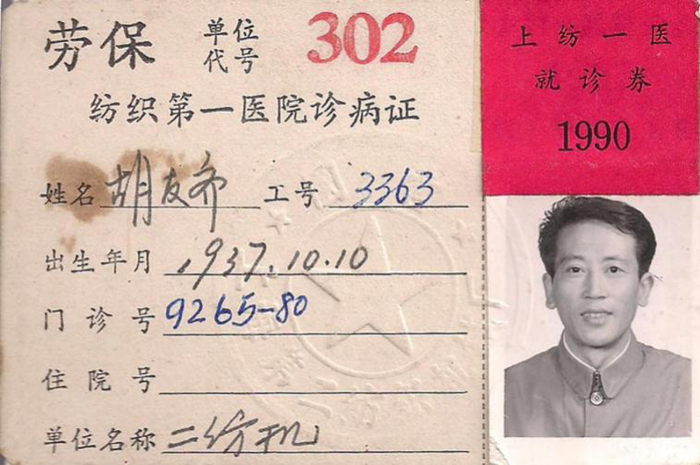 劳保 单位代号 302
纺织第一医院诊病证
姓名 胡友齐 工号 3363
出生年月 1937.10.10
门诊号 9265-80
住院号
单位名称 二纺机
上纺一医
就诊券
1990